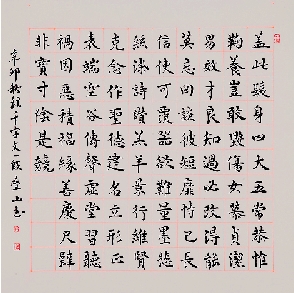 蓋此髮身四大五常恭惟
鞠養豈敢毀傷女慕貞潔
男效才良知過必改得能
莫忘罔談彼短靡恃己長
信使可覆器欲難量墨悲
絲染詩讚羔羊景行維賢
克念作聖德建名立形正
表端空谷傳聲虛堂習聽
禍因惡積福緣善慶尺璧
非寶寸陰是競
辛卯秋錄千字文一段